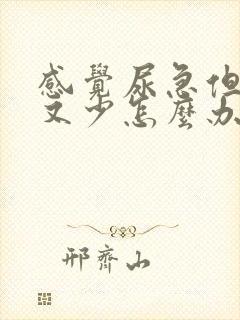 感覺尿急但
又少怎麼办
邢齊山